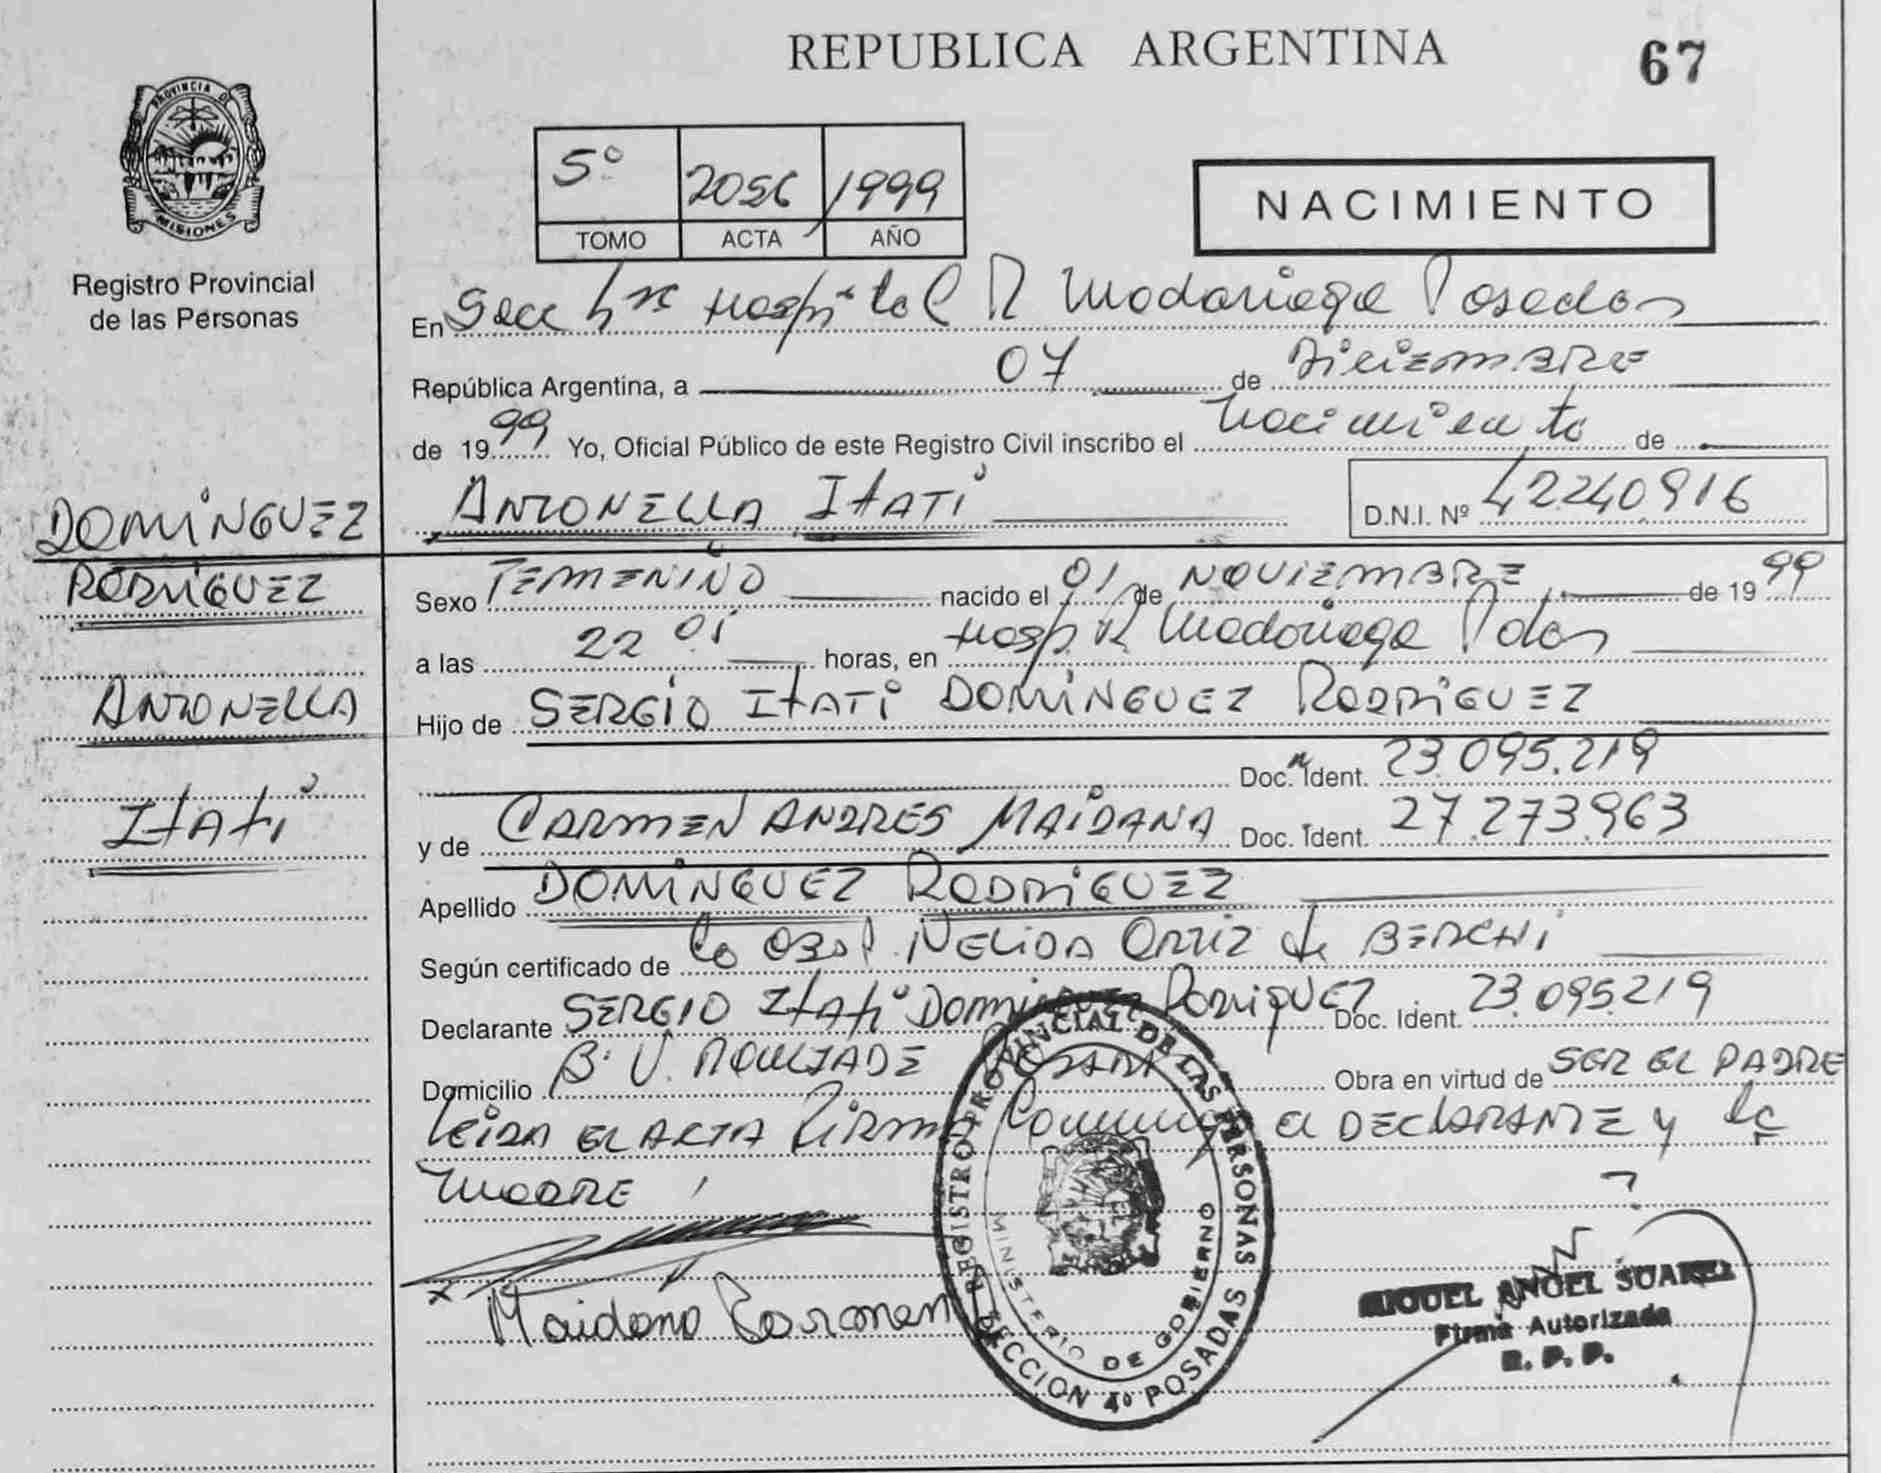 REPUBLICA ARGENTINA
67
PROVINCIA DE
MISIONES
Registro Provincial
de las Personas
5º 2056 1999
TOMO ACTA AÑO
NACIMIENTO
En Secc Hospital R Madariaga Posadas
República Argentina, a 07 de Diciembre
de 1999 Yo, Oficial Público de este Registro Civil inscribo el Nacimiento de
ANTONELLA ITATÍ
D.N.I. Nº 42240916
DOMÍNGUEZ
RODRIGUEZ
ANTONELLA
ITATÍ
Sexo FEMENINO nacido el 01 de NOVIEMBRE de 1999
a las 22 01 horas, en Hosp. R Madariaga Pdas
Hijo de SERGIO ITATI DOMINGUEZ RODRIGUEZ
Doc. Ident. 23.095.219
y de CARMEN ANDRES MAIDANA Doc. Ident. 27.273.963
Apellido DOMINGUEZ RODRIGUEZ
Según certificado de la Obst. NELIDA ORTIZ de BERCHI
Declarante SERGIO Itatí Dominguez RODRIGUEZ Doc. Ident. 23.095.219
Domicilio B. U. Posadas Obra en virtud de SER EL PADRE
Leida EL ACTA Firma Conmigo el DECLARANTE y la
MADRE
Maidana Carmen
REGISTRO PROVINCIAL DE LAS PERSONAS
MINISTERIO DE GOBIERNO
SECCION 4º POSADAS
MIGUEL ANGEL SUAREZ
Firma Autorizada
R. P. P.